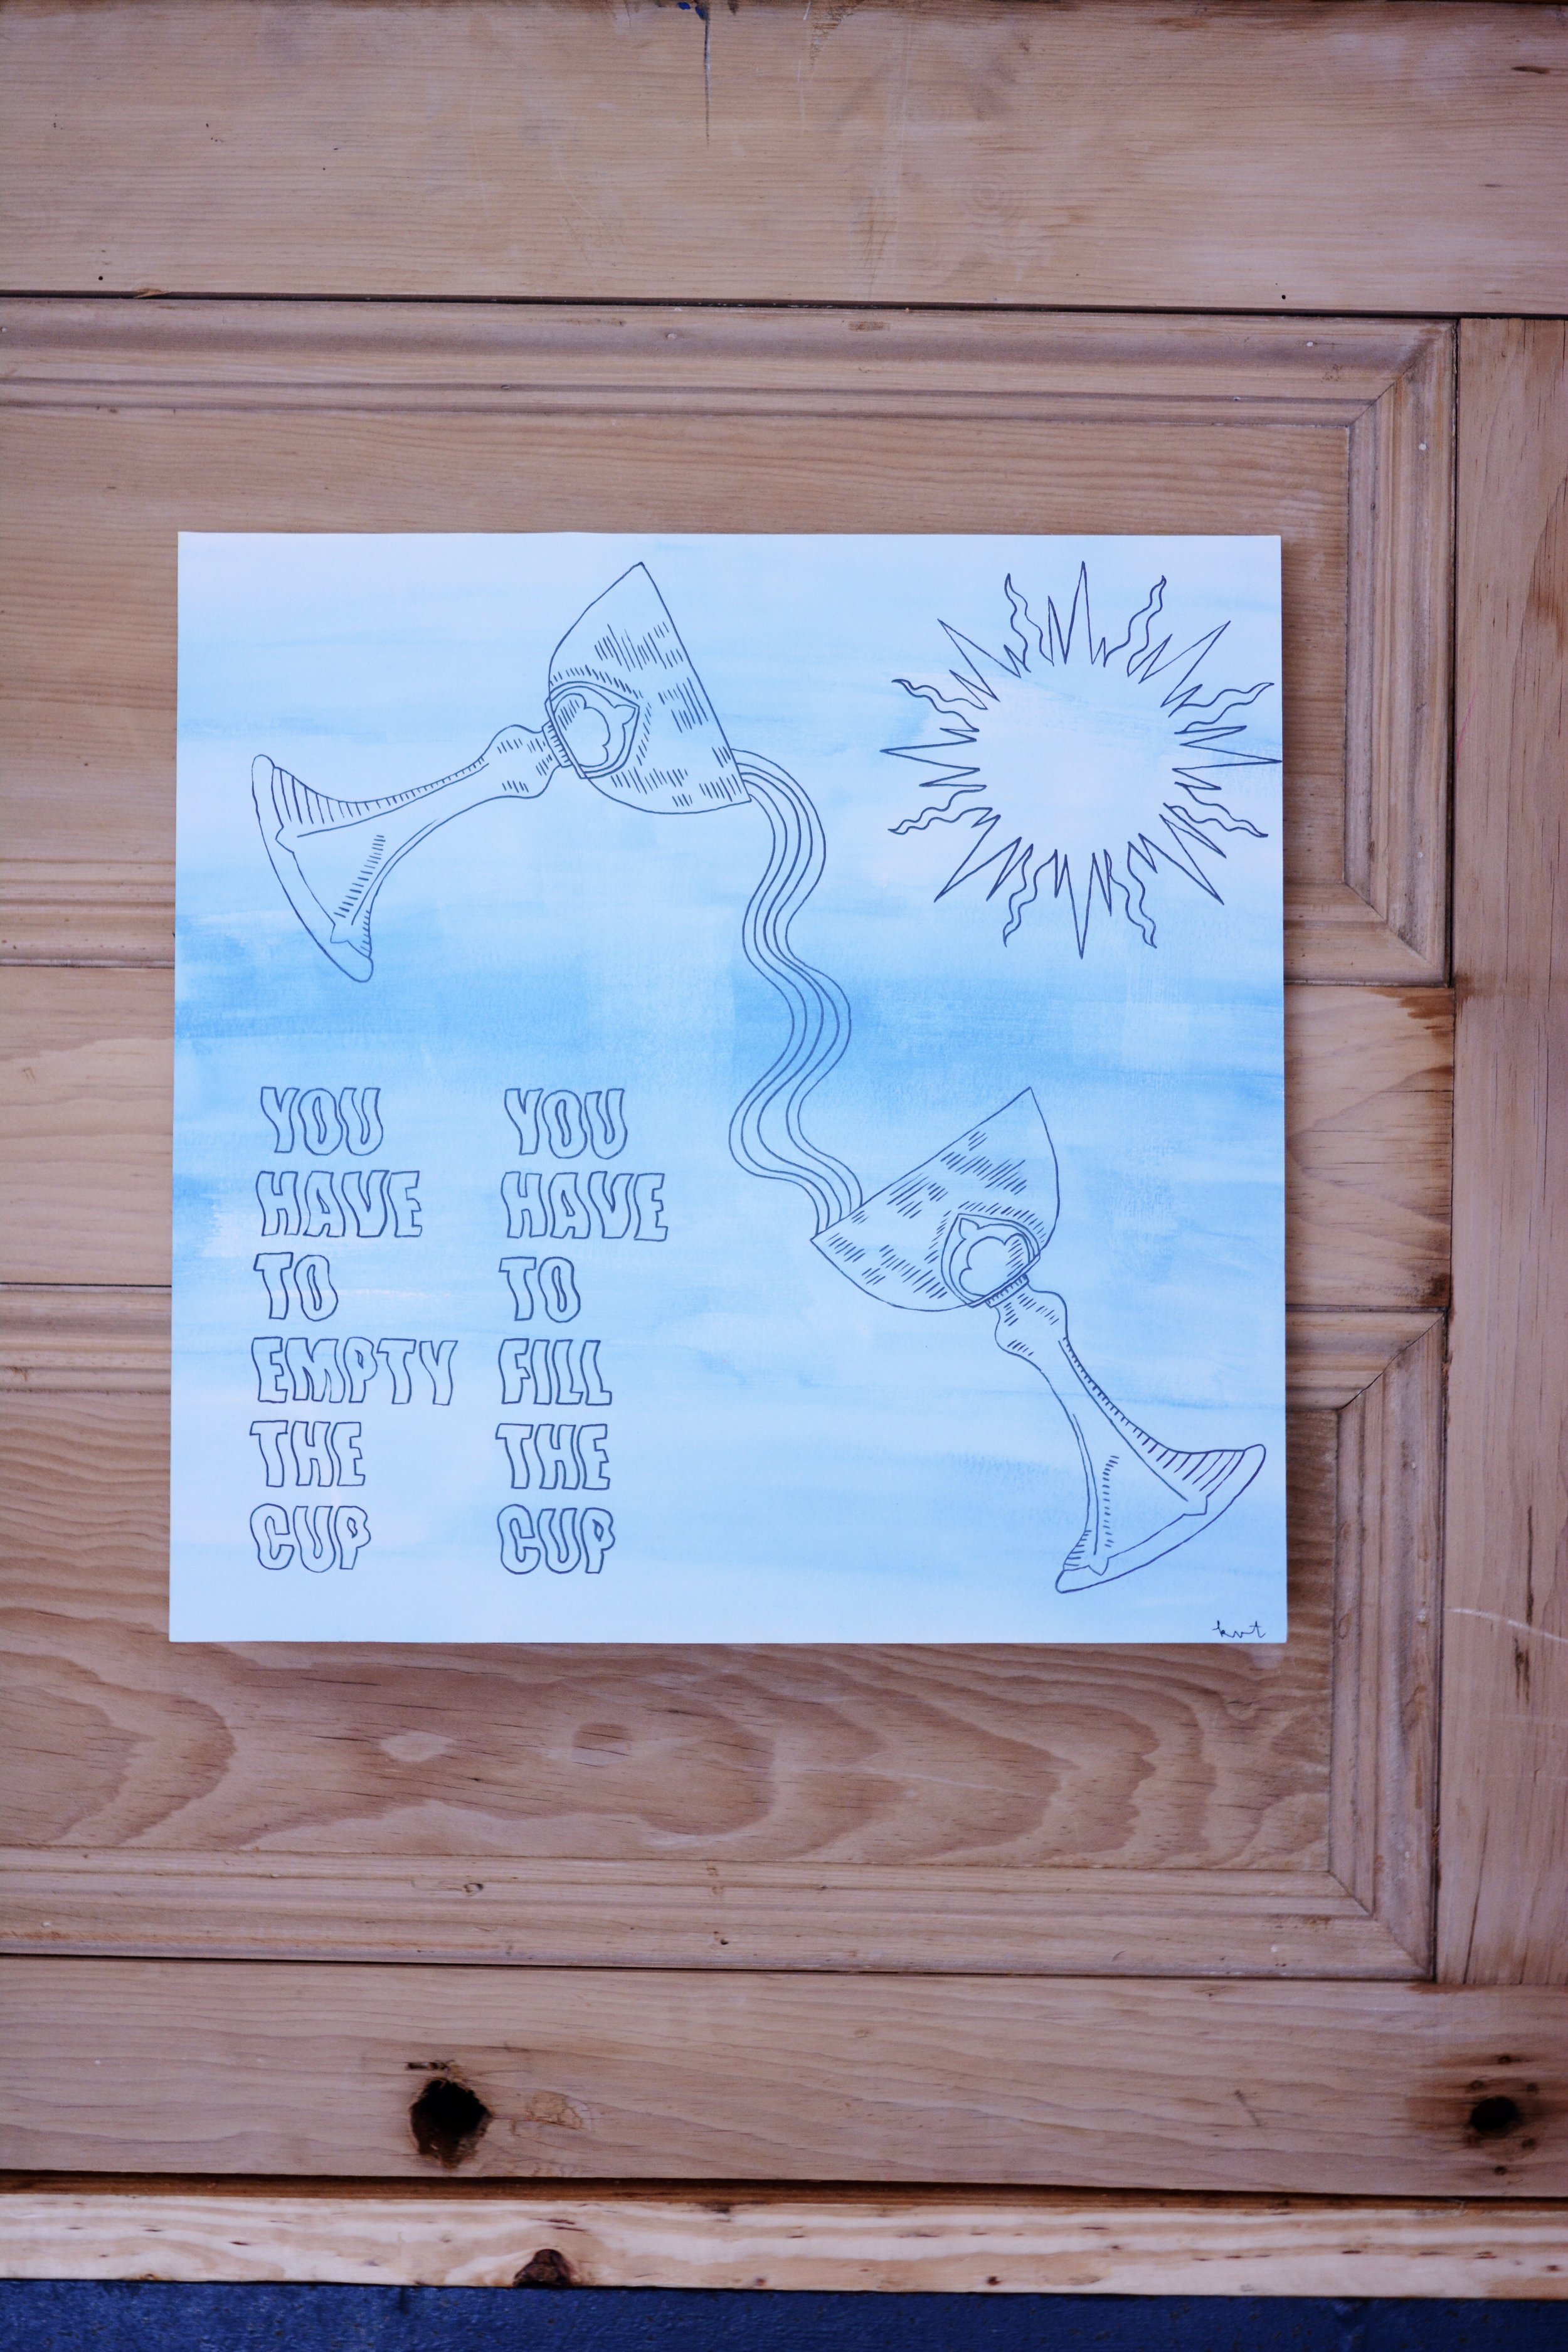 YOU
HAVE
TO
EMPTY
THE
CUP
YOU
HAVE
TO
FILL
THE
CUP
kvt